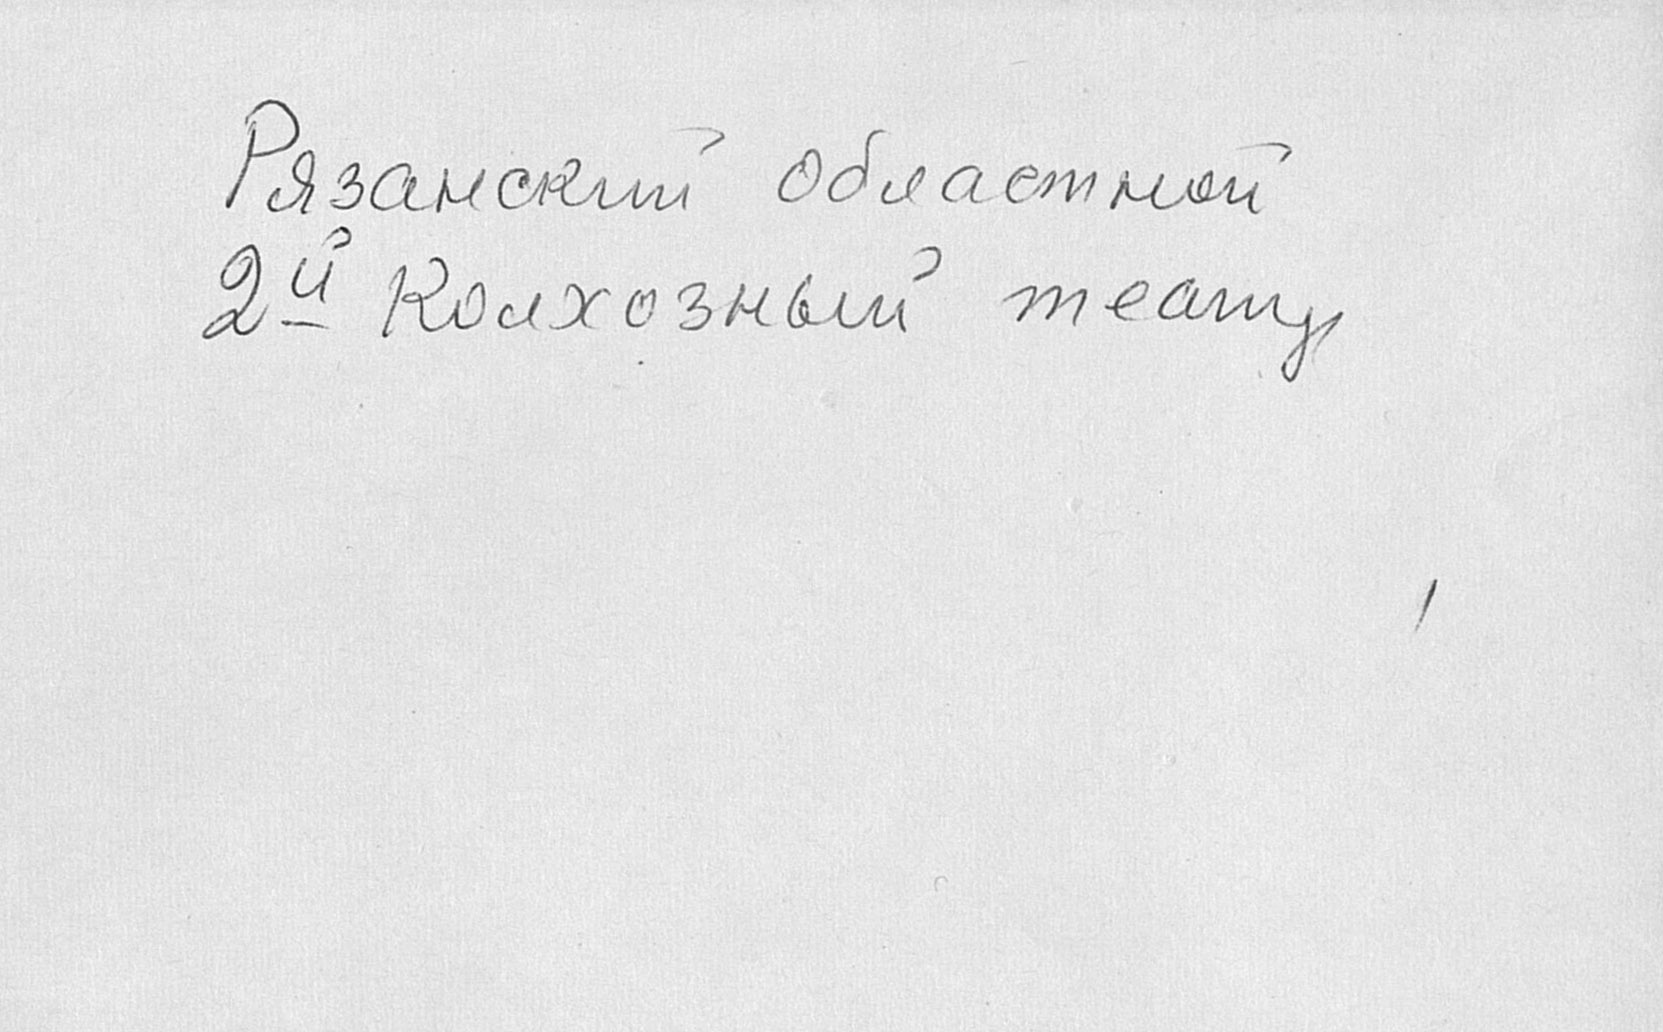 Рязанский областной
2й колхозный театр